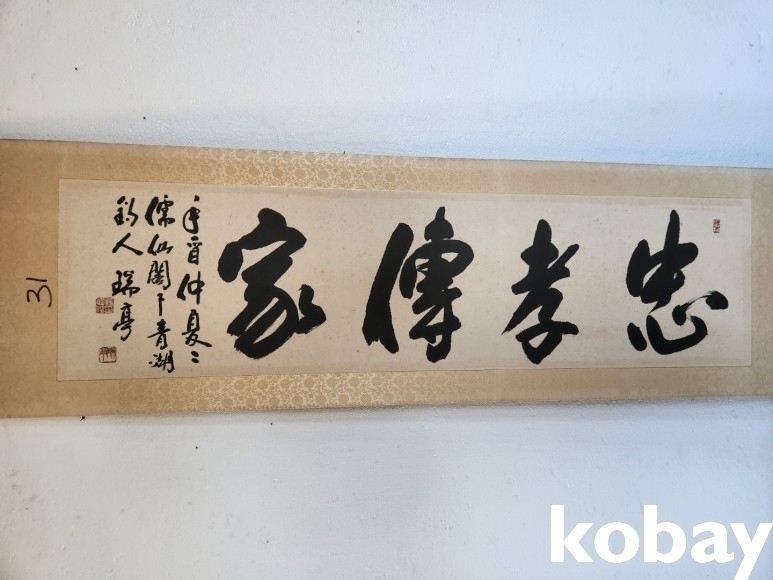 忠孝傳家
辛酉仲夏
儒仙閣下青湖
釣人 瑞亭
31
kobay